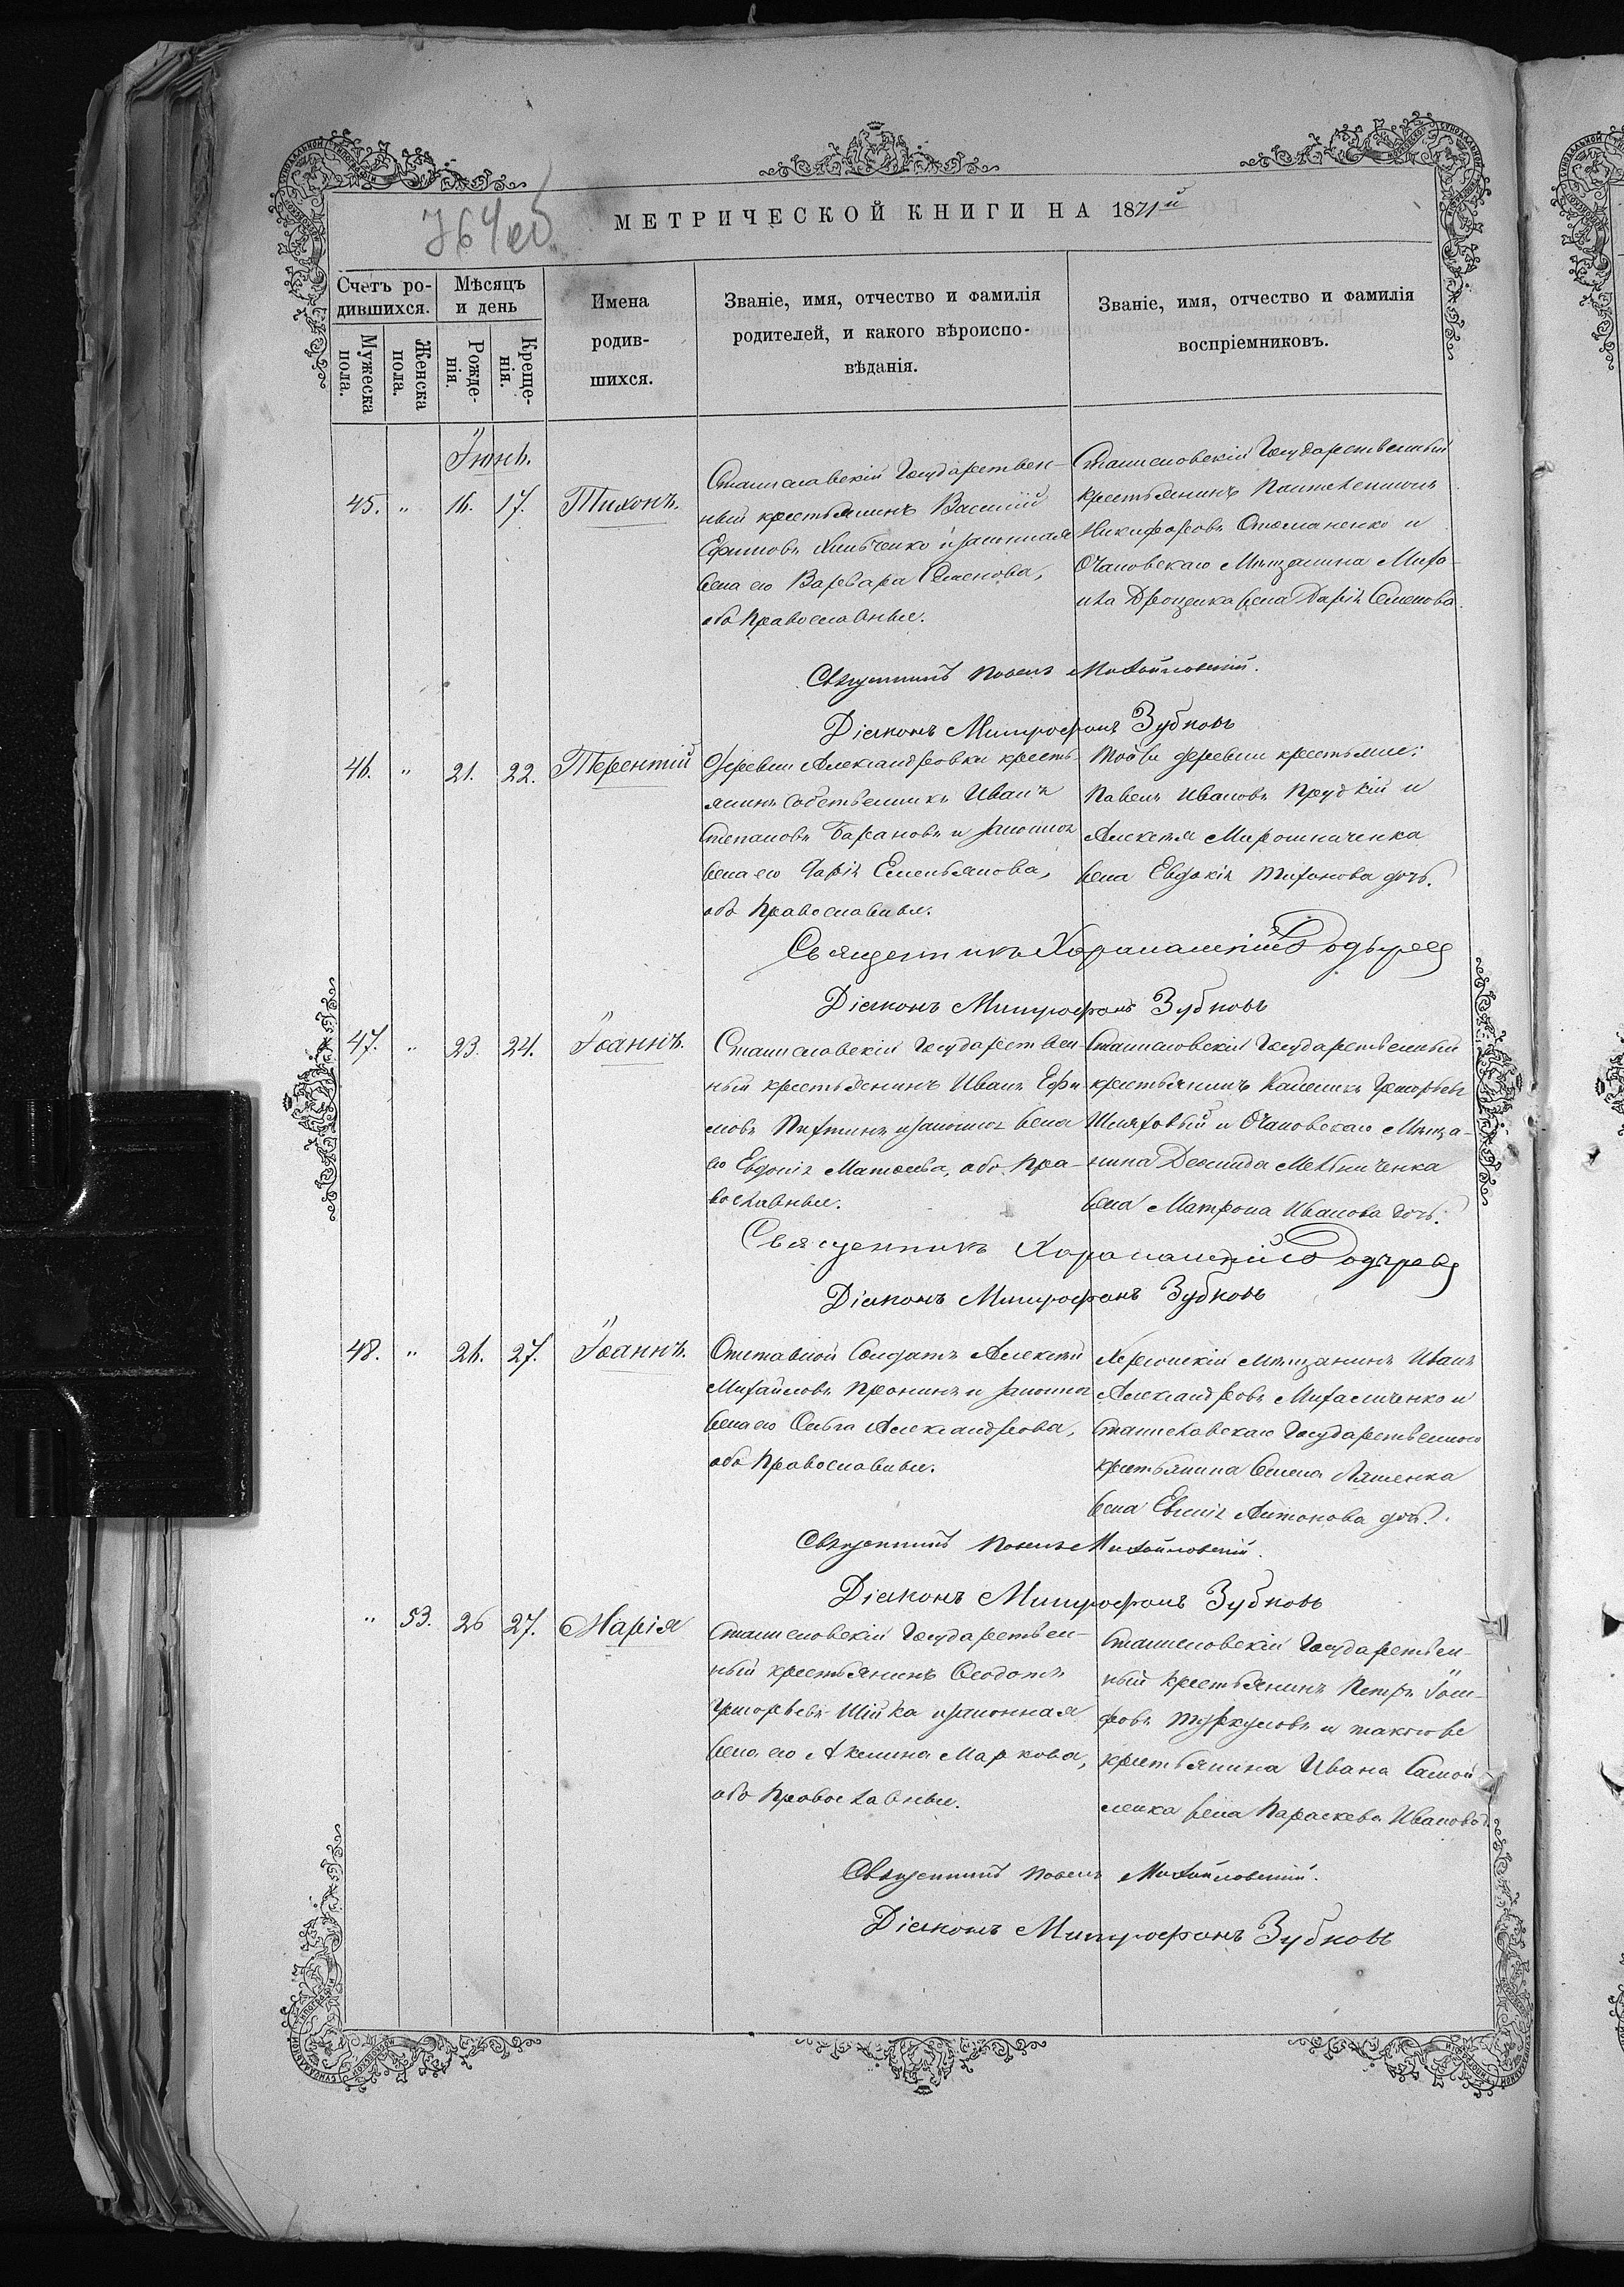 764 об
МЕТРИЧЕСКОЙ КНИГИ НА 1871й
Счетъ ро-
дившихся.
Мужеска
пола.
Женска
пола.
Мѣсяцъ
и день
Рожде-
нія.
Креще-
нія.
Имена
родив-
шихся.
Званіе, имя, отчество и фамилія
родителей, и какого вѣроиспо-
вѣданія.
Званіе, имя, отчество и фамилія
воспріемниковъ.
Іюнь.
45. " 16. 17. Тихонъ.
Станиславскій Государствен-
ный крестьянинъ Василій
Ефимовъ и законная
жена его Варвара Семенова,
оба Православные.
Станиславскій Государственный
крестьянинъ Пантелеимонъ
Никифоровъ Отоманенко и
Очаковскаго Мѣщанина Миро-
на Дроценка жена Дарія Семенова
Священникъ Павелъ Михайловскій.
Діаконъ Митрофанъ Зубковъ
46. " 21. 22. Терентій
Деревни Александровки кресть-
янинъ собственникъ Иванъ
Степановъ Барановъ и законная
жена его Дарія Емельянова,
оба Православные.
Той же деревни крестьяне:
Павелъ Ивановъ Прудкій и
Алексѣя Мирошниченка
жена Евдокія Тихонова дочь.
Священникъ
Діаконъ Митрофанъ Зубковъ
47. " 23. 24. Іоаннъ.
Станиславскій Государствен-
ный крестьянинъ Иванъ Ефи-
мовъ и законная жена
его Евдокія Матѳеева, оба Пра-
вославные.
Станиславскій Государственный
крестьянинъ Каленикъ Григорьевъ
Шляховый и Очаковскаго Мѣща-
нина Демида Мельниченка
жена Матрона Иванова дочь.
Священникъ
Діаконъ Митрофанъ Зубковъ
48. " 26. 27. Іоаннъ.
Отставной Солдатъ Алексѣй
Михайловъ Пронинъ и законная
жена его Ольга Александрова,
оба Православные.
Херсонскій Мѣщанинъ Иванъ
Александровъ Михаличенко и
Станиславскаго Государственного
крестьянина Семена Ляшенка
жена Евгенія Антонова дочь.
Священникъ Павелъ Михайловскій.
Діаконъ Митрофанъ Зубковъ
" 53. 26 27. Марія
Станиславскій Государствен-
ный крестьянинъ Ѳеодотъ
Григорьевъ Шійка и законная
жена его Акилина Маркова,
оба Православные.
Станиславскій Государствен-
ный крестьянинъ Петръ Іоси-
фовъ Туркуловъ и такого же
крестьянина Ивана Самой-
ленка жена Параскева Иванова
Священникъ Павелъ Михайловскій.
Діаконъ Митрофанъ Зубковъ